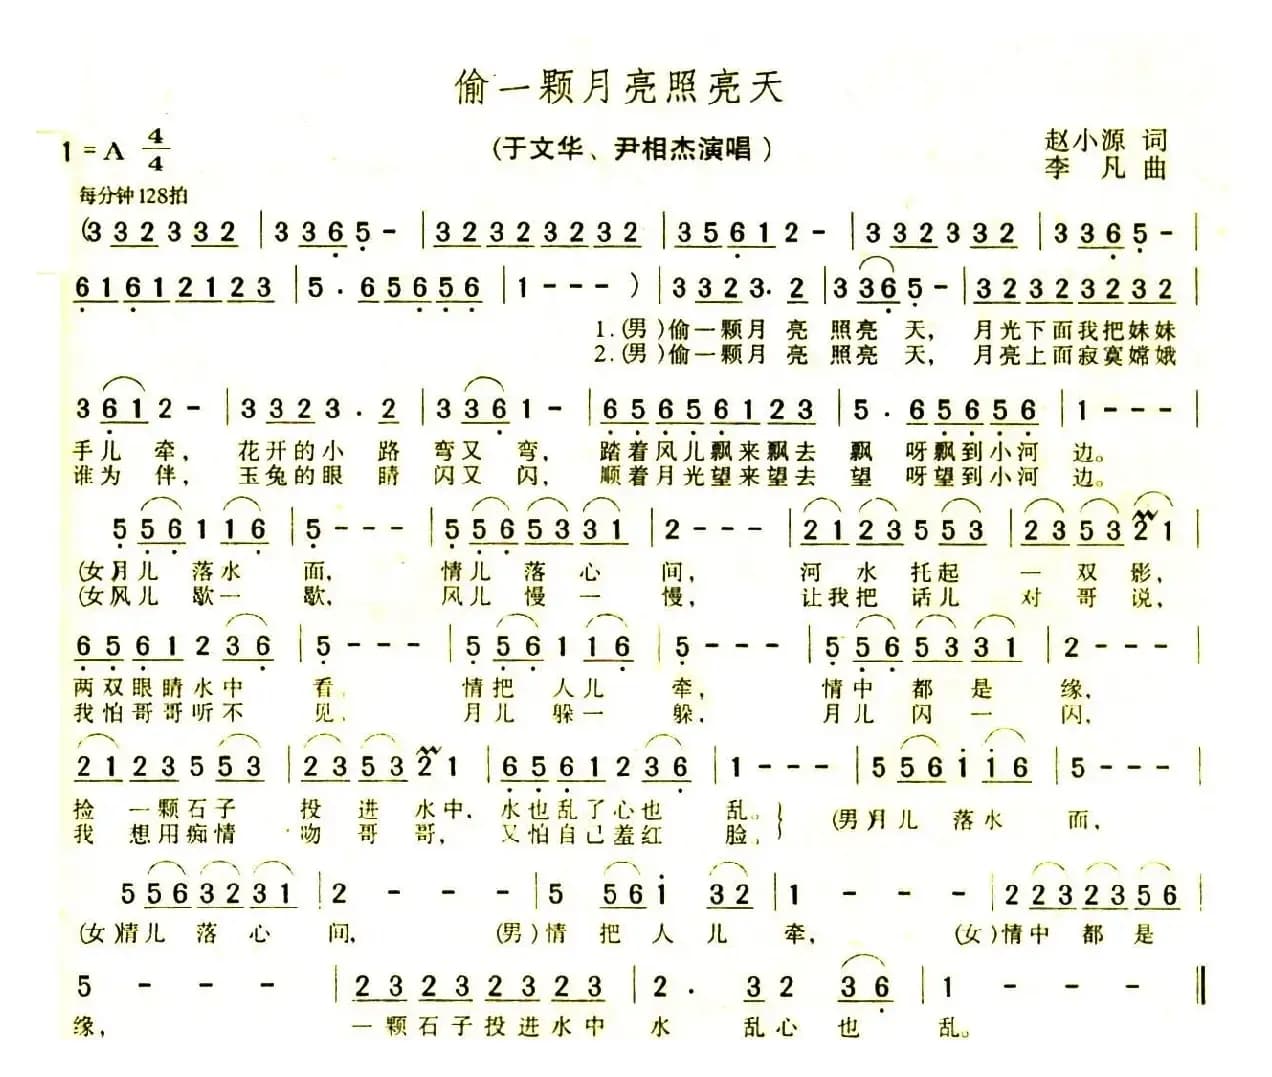 偷一颗月亮照亮天
1=A 4/4
(于文华、尹相杰演唱)
赵小源 词
李 凡 曲
每分钟128拍
(3 3 2 3 3 2 | 3 3 6 5 - | 3 2 3 2 3 2 3 2 | 3 5 6 1 2 - | 3 3 2 3 3 2 | 3 3 6 5 - |
6 1 6 1 2 1 2 3 | 5 . 6 5 6 5 6 | 1 - - - ) | 3 3 2 3. 2 | 3 3 6 5 - | 3 2 3 2 3 2 3 2 |
1.(男)偷一颗月 亮 照亮 天, 月光下面我把妹妹
2.(男)偷一颗月 亮 照亮 天, 月亮上面寂寞嫦娥
3 6 1 2 - | 3 3 2 3 . 2 | 3 3 6 1 - | 6 5 6 5 6 1 2 3 | 5 . 6 5 6 5 6 | 1 - - - |
手儿 牵, 花开的小 路 弯又 弯, 踏着风儿飘来飘去 飘 呀飘到小河 边。
谁为 伴, 玉兔的眼 睛 闪又 闪, 顺着月光望来望去 望 呀望到小河 边。
5 5 6 1 1 6 | 5 - - - | 5 5 6 5 3 3 1 | 2 - - - | 2 1 2 3 5 5 3 | 2 3 5 3 2 1 |
(女)月儿 落水 面, 情儿 落 心 间, 河 水 托起 一 双 影,
(女)风儿 歇一 歇, 风儿 慢 一 慢, 让我把 话儿 对 哥 说,
6 5 6 1 2 3 6 | 5 - - - | 5 5 6 1 1 6 | 5 - - - | 5 5 6 5 3 3 1 | 2 - - - |
两双眼睛水中 看, 情把 人儿 牵, 情中 都 是 缘,
我怕哥哥听不 见, 月儿 躲一 躲, 月儿 闪 一 闪,
2 1 2 3 5 5 3 | 2 3 5 3 2 1 | 6 5 6 1 2 3 6 | 1 - - - | 5 5 6 i i 6 | 5 - - - |
捡 一颗石子 投 进 水中, 水也乱了心也 乱。} (男)月儿 落水 面,
我 想用痴情 吻 哥 哥, 又怕自己羞红 脸,
5 5 6 3 2 3 1 | 2 - - - | 5 5 6 i 3 2 | 1 - - - | 2 2 3 2 3 5 6 |
(女)情儿 落 心 间, (男)情 把 人 儿 牵, (女)情中 都 是
5 - - - | 2 3 2 3 2 3 2 3 | 2 . 3 2 3 6 | 1 - - - ‖
缘, 一颗石子投进水中 水 乱心 也 乱。